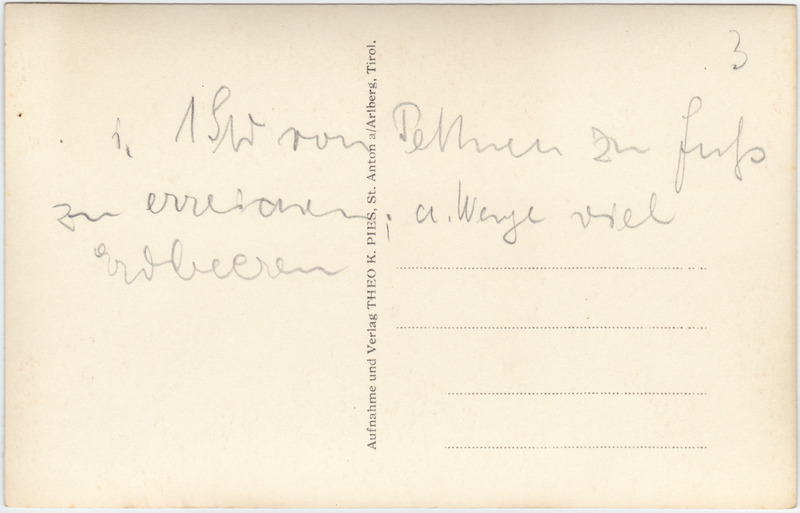 3
i. 1 Std von Pettneu zu Fuß
zu erreichen; a. Wege viel
Erdbeeren
Aufnahme und Verlag THEO K. PIES, St. Anton a/Arlberg, Tirol.